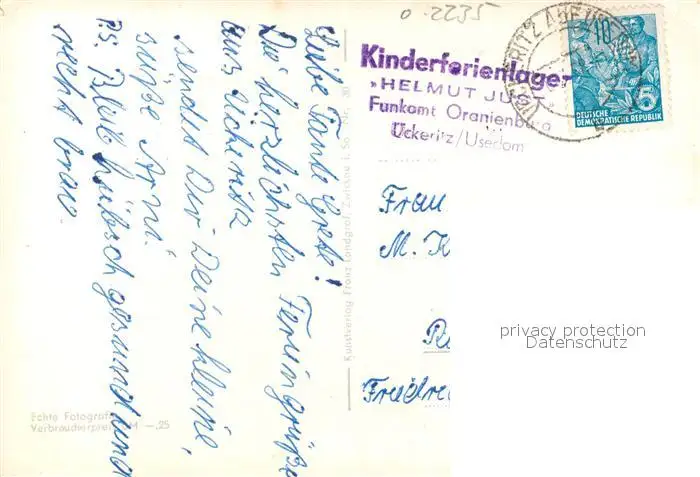 o 2235
Kinderferienlager
"HELMUT JUST"
Funkamt Oranienburg
Ückeritz/Usedom
10
5
DEUTSCHE
DEMOKRATISCHE REPUBLIK
Liebe Tante Grete!
Die herzlichsten Feriengrüße
aus Ückeritz
sendet Dir Deine kleine,
süße Arni.
P.S. Bleib hübsch gesund und
recht brav.
Kunstverlag Franz Landgraf, Zwickau i. Sa.
Frau
M. K
Fried
Echte Fotografie
Verbraucherpreis DM -.25
privacy protection
Datenschutz